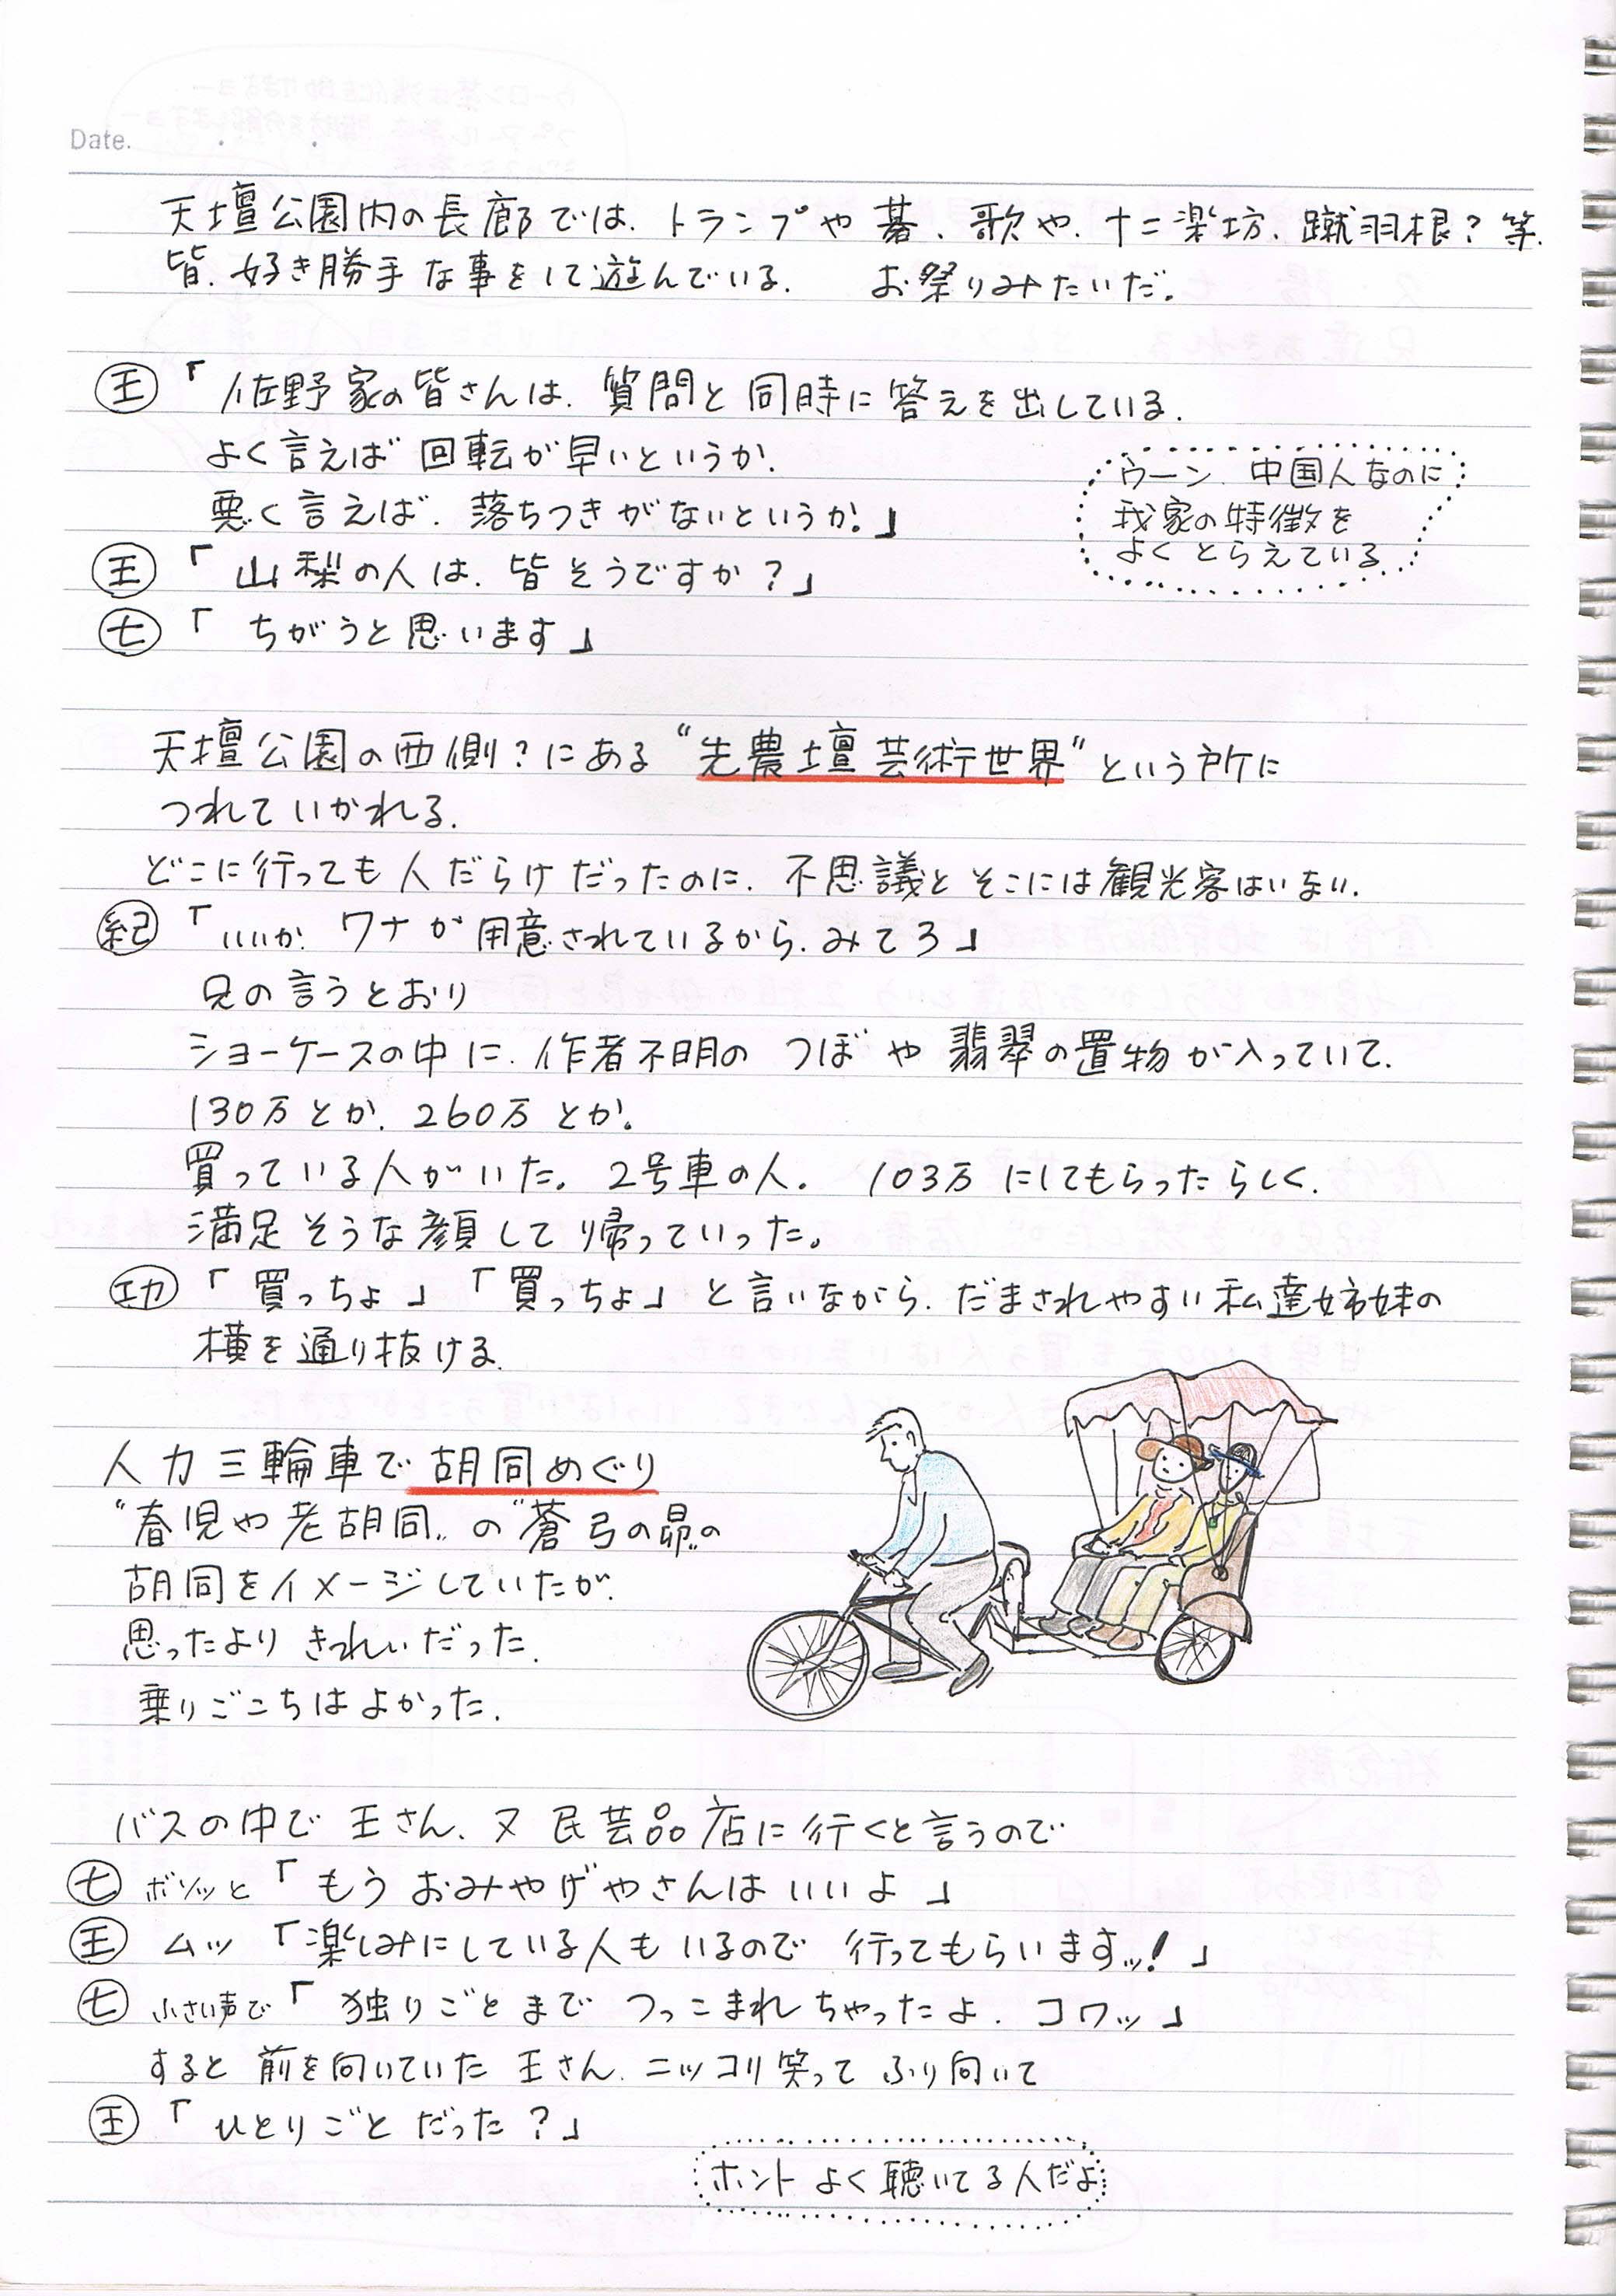 Date.
天壇公園内の長廊では、トランプや碁、歌や、十二楽坊、蹴羽根？等、
皆、好き勝手な事をして遊んでいる。 お祭りみたいだ。
王「佐野家の皆さんは、質問と同時に答えを出している。
よく言えば回転が早いというか、
悪く言えば、落ちつきがないというか。」
ウーン、中国人なのに
我家の特徴を
よくとらえている
王「山梨の人は、皆そうですか？」
七「ちがうと思います」
天壇公園の西側？にある“先農壇芸術世界”という所に
つれていかれる。
どこに行っても人だらけだったのに、不思議とそこには観光客はいない。
紀「いいか、ワナが用意されているから、みてろ」
兄の言うとおり
ショーケースの中に、作者不明のつぼや翡翠の置物が入っていて、
130万とか、260万とか。
買っている人がいた。2号車の人。 103万にしてもらったらしく、
満足そうな顔して帰っていった。
功「買っちょ」「買っちょ」と言いながら、だまされやすい私達姉妹の
横を通り抜ける。
人力三輪車で胡同めぐり
“春児や老胡同”の“蒼弓の昴”の
胡同をイメージしていたが、
思ったよりきれいだった。
乗りごこちはよかった。
バスの中で王さん、又民芸品店に行くと言うので
七 ボソッと「もうおみやげやさんはいいよ」
王 ムッ「楽しみにしている人もいるので行ってもらいますッ！」
七 小さい声で「独りごとまでつっこまれちゃったよ、コワッ」
すると前を向いていた王さん、ニッコリ笑ってふり向いて
王「ひとりごとだった？」
ホントよく聴いてる人だよ